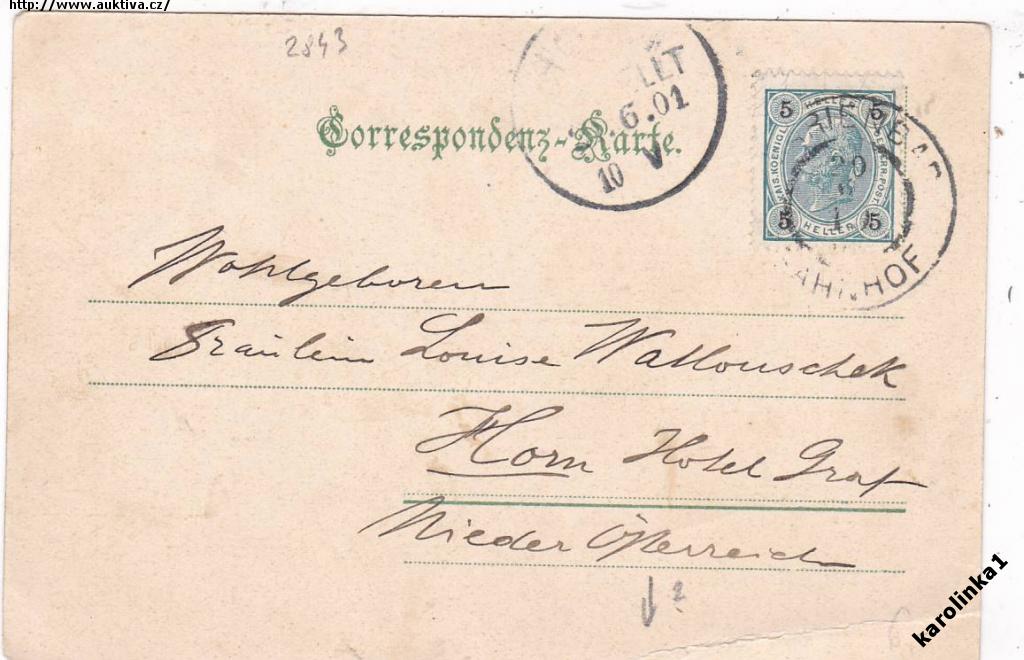 http://www.auktiva.cz/
2843
Correspondenz-Karte.
6.01
10 V
5 HELLER 5
KAIS. KOENIGL.
5 HELLER 5
BAHNHOF
Wohlgeboren
Fräulein Louise Watlouschek
Horn Hotel Graf
Nieder Österreich
?
karolinka1